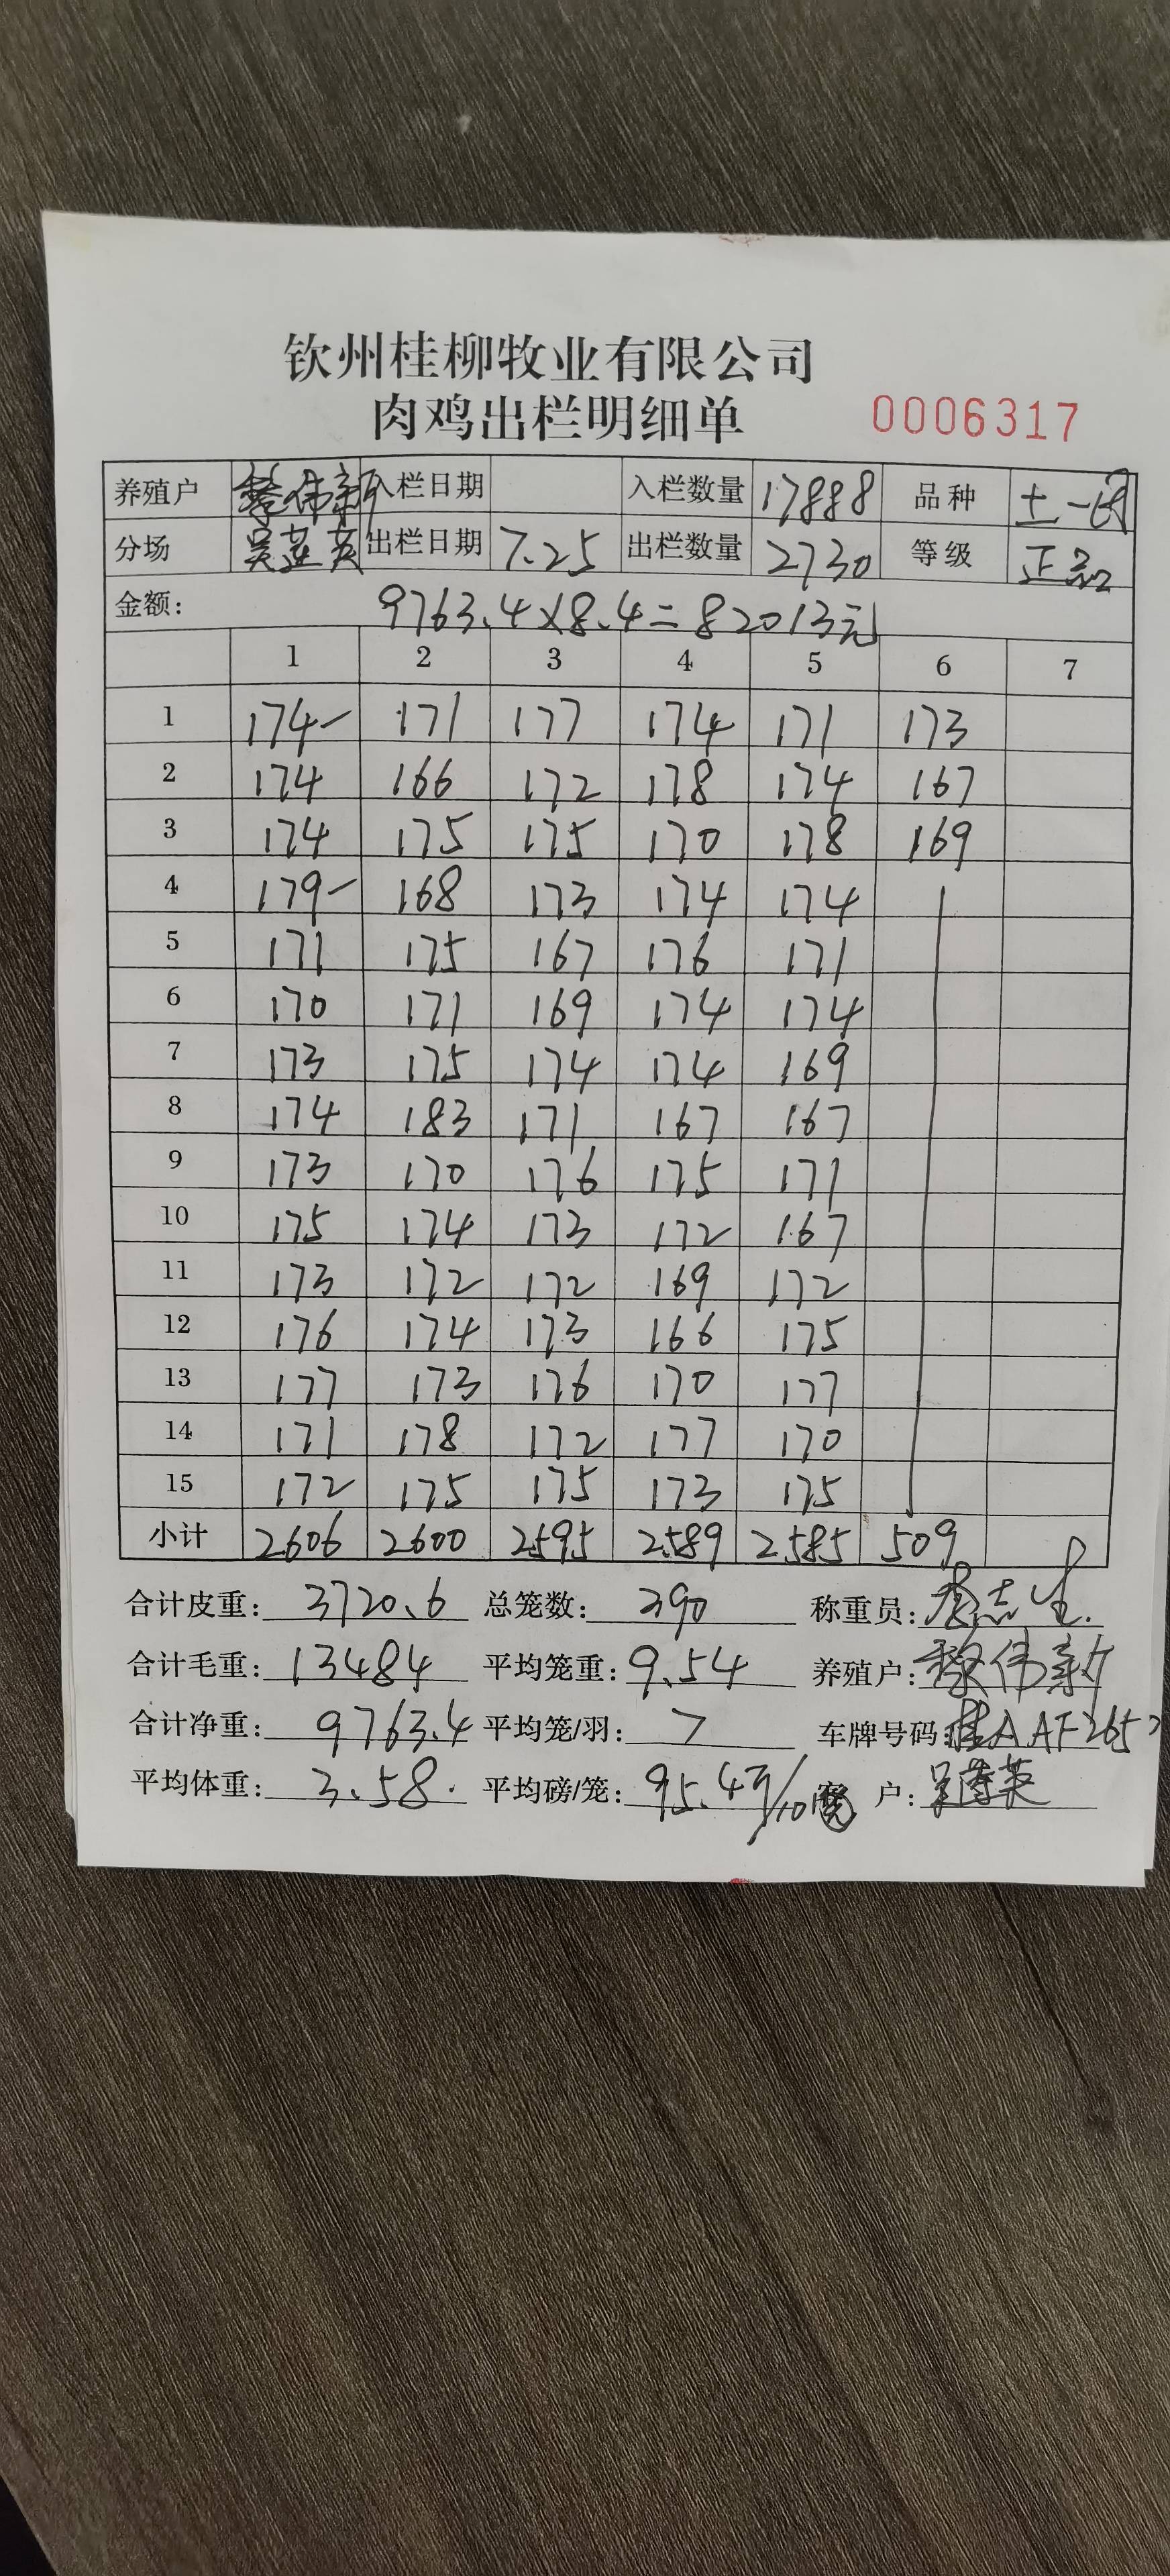 钦州桂柳牧业有限公司
肉鸡出栏明细单 0006317
养殖户 黎伟新 入栏日期 入栏数量 17888 品种 土一
分场 出栏日期 7.25 出栏数量 2730 等级 正品
金额: 9763.4×8.4=82013元
1 2 3 4 5 6 7
1 174 171 177 174 171 173
2 174 166 172 178 174 167
3 174 175 175 170 178 169
4 179 168 173 174 174
5 171 175 167 176 171
6 170 171 169 174 174
7 173 175 174 174 169
8 174 183 171 167 167
9 173 170 176 175 171
10 175 174 173 172 167
11 173 172 172 169 172
12 176 174 173 166 175
13 177 173 176 170 177
14 171 178 172 177 170
15 172 175 175 173 175
小计 2606 2600 2595 2589 2585 509
合计皮重: 3720.6 总笼数: 390 称重员:
合计毛重: 13484 平均笼重: 9.54 养殖户: 黎伟新
合计净重: 9763.4 平均笼/羽: 7 车牌号码: 桂AAF2652
平均体重: 3.58 平均磅/笼: 95.4 客户: